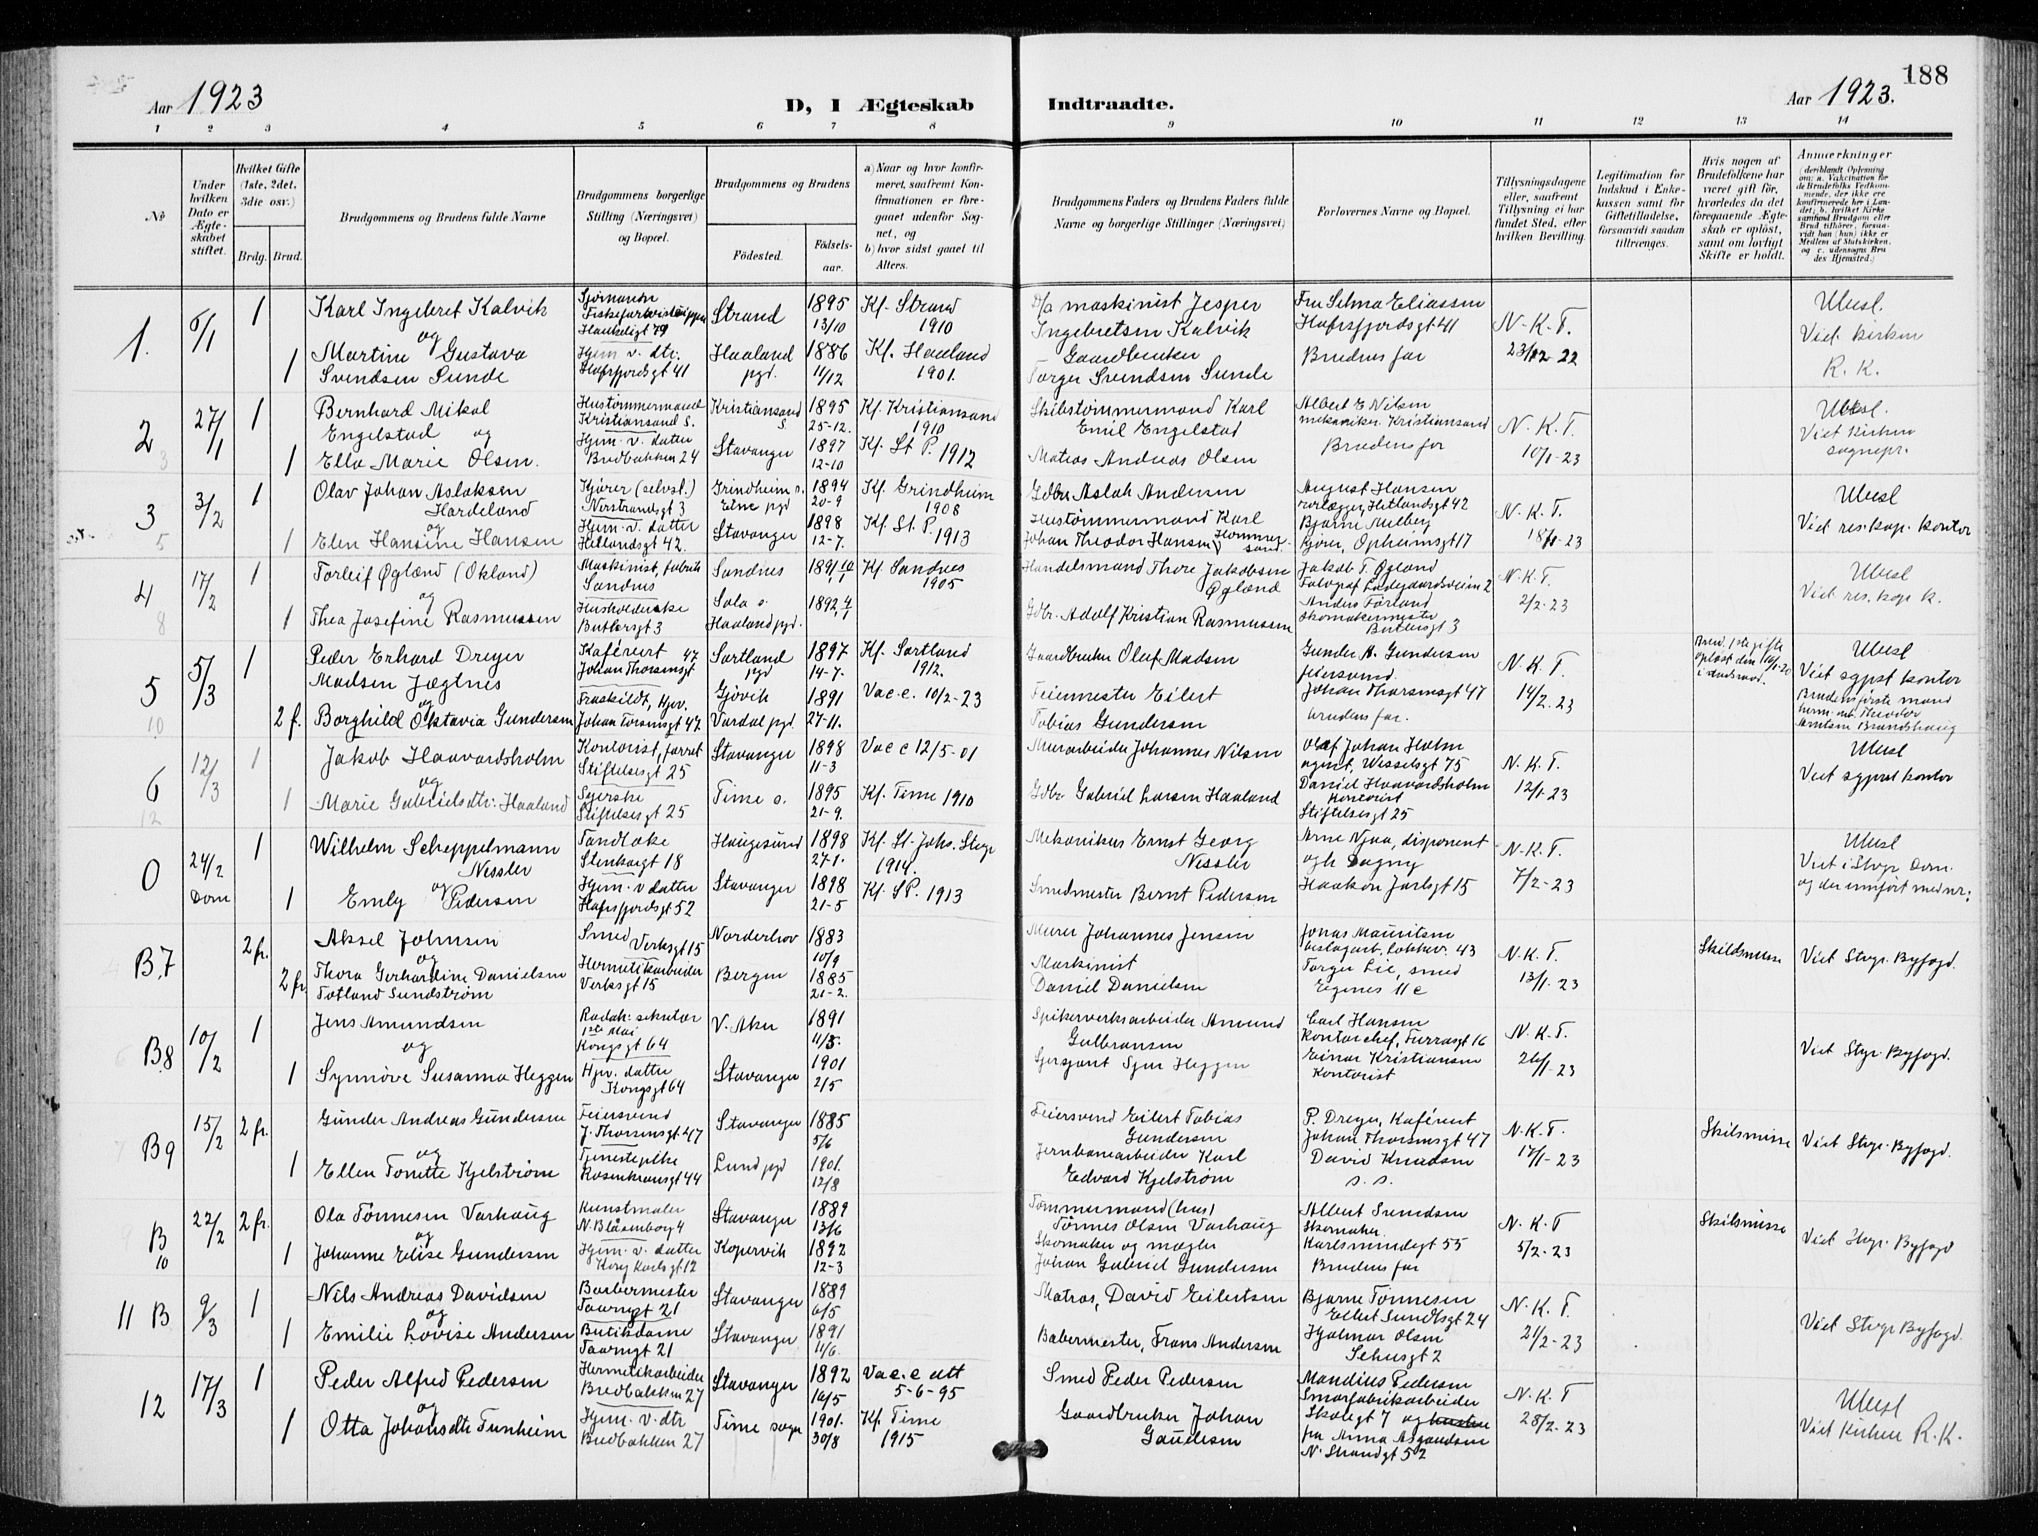 188
Aar 1923
D, I Ægteskab
Indtraadte.
Aar 1923.
1 2 3 4 5 6 7 8 9 10 11 12 13 14
No
Under hvilken Dato er Ægteskabet stiftet.
Hvilket Gifte (1ste, 2det, 3die osv.)
Brdg. Brud.
Brudgommens og Brudens fulde Navne
Brudgommens borgerlige Stilling (Næringsvei) og Bopæl.
Brudgommens og Brudens
Fødested.
Fødselsaar.
a) Naar og hvor konfirmeret, saafremt Konfirmationen er foregaaet udenfor Sognet, og
b) hvor sidst gaaet til Alters.
Brudgommens Faders og Brudens Faders fulde Navne og borgerlige Stillinger (Næringsvei)
Forlovernes Navne og Bopæl.
Tillysningsdagene eller, saafremt Tillysning ei har fundet Sted, efter hvilken Bevilling.
Legitimation for Indskud i Enkekassen samt for Giftetilladelse, forsaavidt saadan tiltrænges.
Hvis nogen af Brudefolkene har været gift før, hvorledes da det foregaaende Ægteskab er opløst, samt om lovligt Skifte er holdt.
Anmærkninger
(deriblandt Oplysning om: a. Vakcination for de Brudefolks Vedkommende, der ikke ere konfirmerede her i Landet; b. hvilket Kirkesamfund Brudgom eller Brud tilhører, forsaavidt han (hun) ikke er Medlem af Statskirken, og c. udensogns Brudes Hjemsted.)
1. 6/1 1
Karl Ingebret Kalvik
og
1 Martine Gustava
Svendsen Sunde
Haukeligt 79
Hjem v. dtr.
Hafrsfjordsgt 41
Strand
Haaland pgd.
1895
13/10
1886
11/12
Kf. Strand
1910
Kf. Haaland
1901.
maskinist Jesper
Ingebretsen Kalvik
Gaardbruker
Torger Svendsen Sunde
Fru Selma Eliassen
Hafrsfjordsgt 41
Brudens far
N.K.T.
23/12-22
Ubesl.
Viet kirken
R. K.
2 27/1 1
Bernhard Mikal
Engelstad og
1 Ella Marie Olsen.
Hustømmermand
Kristiansand S.
Hjem. v. datter
Bredbakken 24
Kristiansand S.
Stavanger
1895
25-12.
1897
12-10
Kf. Kristiansand
1910
Kf. St P. 1912
Skibstømmermand Karl
Emil Engelstad
Matros Andreas Olsen
Albert E Nilsen
mekaniker Kristiansand
Brudens far
N.K.T.
10/1-23
Ubesl.
Viet Kirken
sognepr.
3 3/2 1
Olav Johan Aslaksen
Hardeland
og
1 Elen Hansine Hansen
Kjører (selvst.)
Nerstrandsgt 3
Hjem. v. datter
Hetlandsgt 42.
Grindheim s.
Etne pgd
Stavanger
1894
20-9
1898
12-7.
Kf. Grindheim
1908
Kf. St. P. 1913
Gdbr Aslak Andersen
Hustømmermand Karl
Johan Theodor Hansen
August Hansen
rørlægger, Hetlandsgt 42
Bjarne Melberg
kjører, Opheimsgt 17
N.K.T.
18/1-23
Ubesl
Viet res. kap. kontor
4 17/2 1
Torleif Øgland (Økland)
og
1 Thea Josefine Rasmussen
Maskinist, fabrik
Sandnes
Husholderske
Butlersgt 3
Sandnes
Sola s.
Haaland pgd.
1891
1892
Kf Sandnes
1905
Handelsmand Thore Jakobsen
Øgland
Gdbr. Adolf Kristian Rasmussen
Jakob T. Øgland
Ladegaardsveien 2
Anders Førland
Skomakermester
Butlersgt 3
N.K.T.
2/2-23
Ubesl
Viet res. kap. k.
5 5/3 1
Peder Erhard Dreyer
Madsen Jægtnes
og
2 f. Borghild Oktavia Gundersen
Kafévert
Johan Thorsensgt 47
Fraskildt, Hjv.
Johan Torsensgt 47
Sortland pgd
Gjøvik
Vardal pgd.
1897
14-7.
1891
27-11.
Kf. Sortland
1912.
Vacc. 10/2-23
Gaardbruker Oluf Madsen
Feiermester Eilert
Tobias Gundersen
Gunder A. Gundersen
feiersvend
Johan Thorsensgt 47
brudens far.
N.K.T.
14/2-23
Ubesl
Viet sgpst kontor
Brudens første mand
Theodor
6 12/3 1
Jakob Haavardsholm
og
1 Marie Gabrielsdtr. Haaland
Kontorist, forret
Stiftelsesgt 25
Syerske
Stiftelsesgt 25
Stavanger
Time s.
1898
11-3
1895
21-9.
Vacc 12/5-01
Kf. Time 1910
Murarbeider Johannes Nilsen
Gdbr Gabriel Larsen Haaland
Olaf Johan Holm
agent, Wesselsgt 75
Daniel Haavardsholm
kontorist
Stiftelsesgt 25
N.K.T.
12/1-23
Ubesl
Viet sgpst kontor
0 24/2 Dom 1
Wilhelm Scheppelmann
Nessler
og
1 Emly Pedersen
Tandlæke
Stenkargt 18
Hjem. v datter
Hafrsfjordsgt 52
Haugesund
Stavanger
1898
27-1.
1898
21-5
Kf. St. Johs. Stvgr
1914.
Kf. SP. 1913
Mekanikus Ernst Georg
Nessler
Smedmester Bernt Pedersen
Arne Njaa, disponent
Haakon Jarlsgt 15
N.K.T.
7/2-23
Ubesl
Viet i Stvgr Dom.
B.7 2 fr.
Aksel Johnsen
og
2 fr. Thora Gerhardine Danielsen
Totland Sundstrøm
Smed Verksgt 15
Hermetikarbeider
Verksgt 15
Norderhov
Bergen
1883
10/9
1885
21-2.
Murer Johannes Jensen
Maskinist
Daniel Danielsen
Jonas Mauritsen
Torger Lie, smed
Eigenes 11 c
N.K.T.
13/1-23
Skilsmisse
Viet Stvgr. Byfogd.
B.8 10/2 1
Jens Amundsen
og
1 Synnøve Susanna Heggen
Redak. sekretær
1ste Mai
Kongsgt 64
Hjv. datter
Kongsgt 64
V. Aker
Stavanger
1891
11/3.
1901
2/5
Spikerverksarbeider Amund
Gulbransen
Sersjant Sjur Heggen
Carl Hansen
kontorchef, Furrasgt 16
Einar Kristiansen
kontorist
N.K.T.
26/1-23
Viet Stvgr. Byfogd.
B9 15/2 2 fr.
Gunder Andreas Gundersen
og
1 Ellen Tonette Kjelstrøm
Feiersvend
J. Thorsensgt 47
Tjenestepike
Rosenkransgt 44
Stavanger
Lund pgd
1885
5/6
1901.
12/8
Feiersvend Eilert Tobias
Gundersen
Jernbanearbeider Karl
Edvard Kjelstrøm
P. Dreyer, Kafévert
Johan Thorsensgt 47
David Knudsen
s. s.
N.K.T.
17/1-23
Skilsmisse
Viet Stvgr. Byfogd.
B 10 22/2 2 fr.
Ola Tønnesen Varhaug
og
1 Johanne Elise Gundersen
Kunstmaler
N. Blåsenborg 4
Hjem. v. datter
Kong Karlsgt 12
Stavanger
Kopervik
1889
13/6
1892
12-3
Tømmermand (hus)
Tønnes Olsen Varhaug
Skomaker og mægler
Johan Gabriel Gundersen
Albert Svendsen
Skomaker
Karlsmindegt 55
Brudens far
N.K.T
5/2-23
Skilsmisse
Viet Stvgr. Byfogd
11 B 9/3 1
Nils Andreas Davidsen
og
1 Emilie Lovise Andersen
Barbermester
Taarngt 21
Butikdame
Taarngt 21
Stavanger
Stavanger
1889
6/5
1891
11/6.
Matros, David Eilertsen
Babermester, Frans Andersen
Bjarne Tønnesen
Eilert Sundtsgt 24
Hjalmar Olsen
Sehusgt 2
N.K.T.
21/2-23
Viet Stvgr Byfogd.
12 17/3 1
Peder Alfred Pedersen
og
1 Otta Johansdtr Tunheim
Hermetikarbeider
Bredbakken 27
Hjem. v. dtr
Bredbakken 27
Stavanger
Time sogn
1892
16/5
1901.
30/8
Vacc att
5-6-95
Kf. Time
1915
Smed Peder Pedersen
Gaardbruker Johan
Gaudesen
Mandius Pedersen
Smørfabrikarbeider
Skolegt 7 og
fru Anna Asgautsen
N. Strandgt 52
N.K.T
28/2-23
Ubesl
Viet kirken R.K.